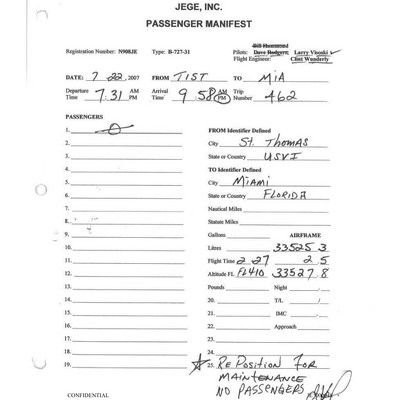 JEGE, INC.
PASSENGER MANIFEST
Bill Hammond
Registration Number: N908JE Type: B-727-31 Pilots: Dave Rodgers, Larry Visoski
Flight Engineer: Clint Wunderly
DATE: 7 22, 2007 FROM TIST TO MIA
Departure Time 7:31 AM PM Arrival Time 9:58 AM PM Trip Number 462
PASSENGERS
1. FROM Identifier Defined
2. City St. Thomas
3. State or Country USVI
4. TO Identifier Defined
5. City Miami
6. State or Country FLORIDA
7. Nautical Miles
8. Statute Miles
9. Gallons AIRFRAME
10. Litres 33525 3
11. Flight Time 2:27 2 5
12. Altitude FL FL410 33527.8
13. Pounds Night
14. 20. T/L /
15. 21. IMC
16. 22. Approach
17. 23.
18. 24.
19. 25. RePosition For
MAINTENANCE
NO PASSENGERS
CONFIDENTIAL